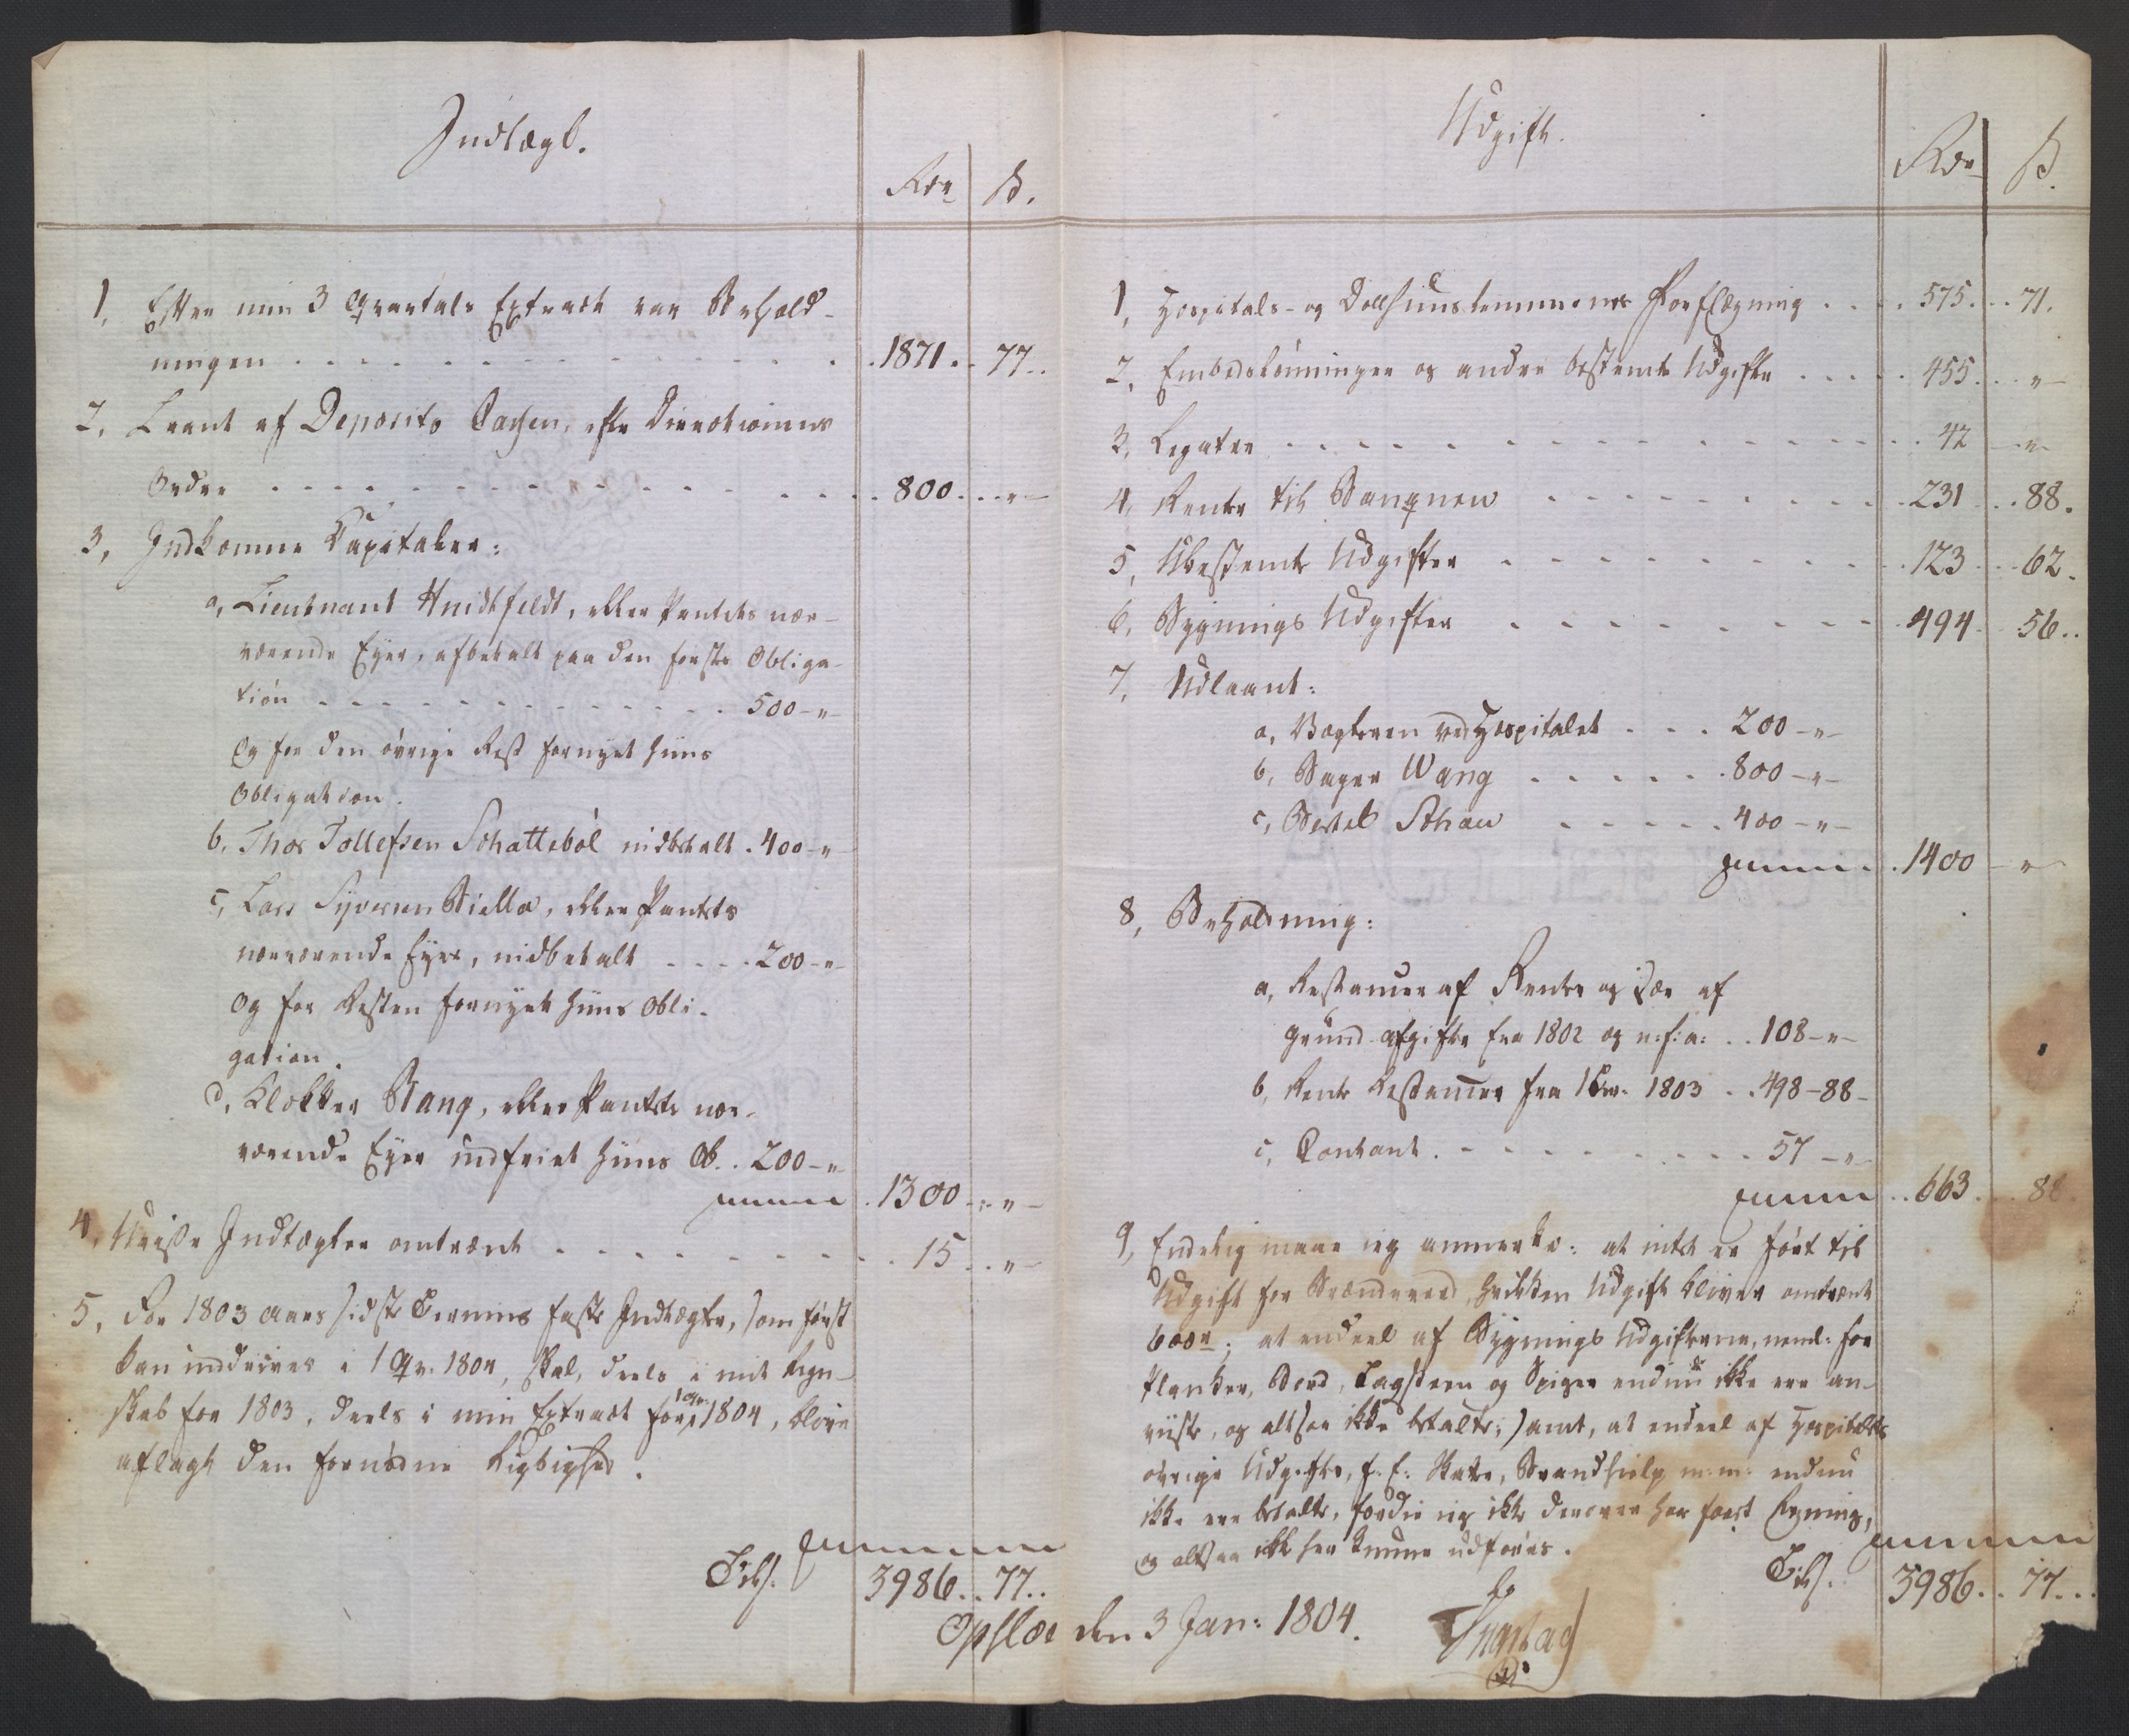 Indtægt.
Rdr ß.
1, Efter min 3 Qvartals Extract var Behold-
ningen . . . . . 1871. 77..
2, Laant af Deposito Cassen, efter Directionens
Ordre . . . . . 800. „
3, Indkomne Capitaler:
a, Lieutnant Huidtfeldt, eller Pantets nær-
værende Eyer, afbetalt paa den første Obliga-
tion . . . . . 500-„-
Og for den øvrige Rest fornyet hans
Obligation.
b, Thor Tollefsen Schattebøl indbetalt . 400-„-
c, Lars Syversen Bielke, eller Pantets
nærværende Eyer, indbetalt . . . . 200-„-
og for Resten fornyet hans Obli-
gation.
d, Klokker Stang, eller Pantets nær-
værende Eyer indfriet hans Ob. . 200-„-
1300 . „-
4, Uvisse Indtægter omtrent . . . . . 15 . . „-
5, For 1803 Aars sidste Termins faste Indtægter, som først
kan inddrives i 1 Qv. 1804, skal, deels i mit Regn-
skab for 1803, deels i min Extract for 1 Qv. 1804, blive
aflagt den fornødne Rigtighed.
Tils. 3986.. 77..
Udgift.
Rdr ß.
1, Hospitals- og Dollhuuslemmernes Forflegning . . . . 575. . . 71.
2, Embedslønninger og andre bestemte Udgifter . . . . . 455. . . „-
3, Legater . . . . . 42 „-
4, Rente til Banquen . . . . . 231 . . 88.
5, Ubestemte Udgifter . . . . . 123 . . 62.
6, Bygnings Udgifter . . . . . 494. 56..
7, Udlaant:
a, Vægteren ved Hospitalet . . . 200-„-
b, Bager Wang . . . . . 800-„-
c, Bertel Schou . . . . . 400-„-
1400 - „
8, Beholdning:
a, Restancer af Rente og især af
Grund-Afgifter fra 1802 og n: f: a: . . 108-„-
b, Rente Restancer fra 1 Term. 1803 . . 498-88-
c, Contant . . . . . 57-„-
663. . 88.
9, Endelig maae ieg anmerke: at intet er ført til
Udgift for Brændeved, hvilken Udgift bliver omtrent
600 rd; at endeel af Bygnings Udgifterne, neml: for
Planker, Bord, Tagsteen og Spiger endnu ikke ere an-
viiste, og altsaa ikke betalte; samt, at endeel af Hospitalets
øvrige Udgifter, f. E: Skatter, Brandhielp m: m: endnu
ikke ere betalte, fordie ieg ikke derover har faaet Regning,
og altsaa ikke her kunne udføres.
Tils. 3986. . 77..
Opsloe den 3 Jan: 1804.